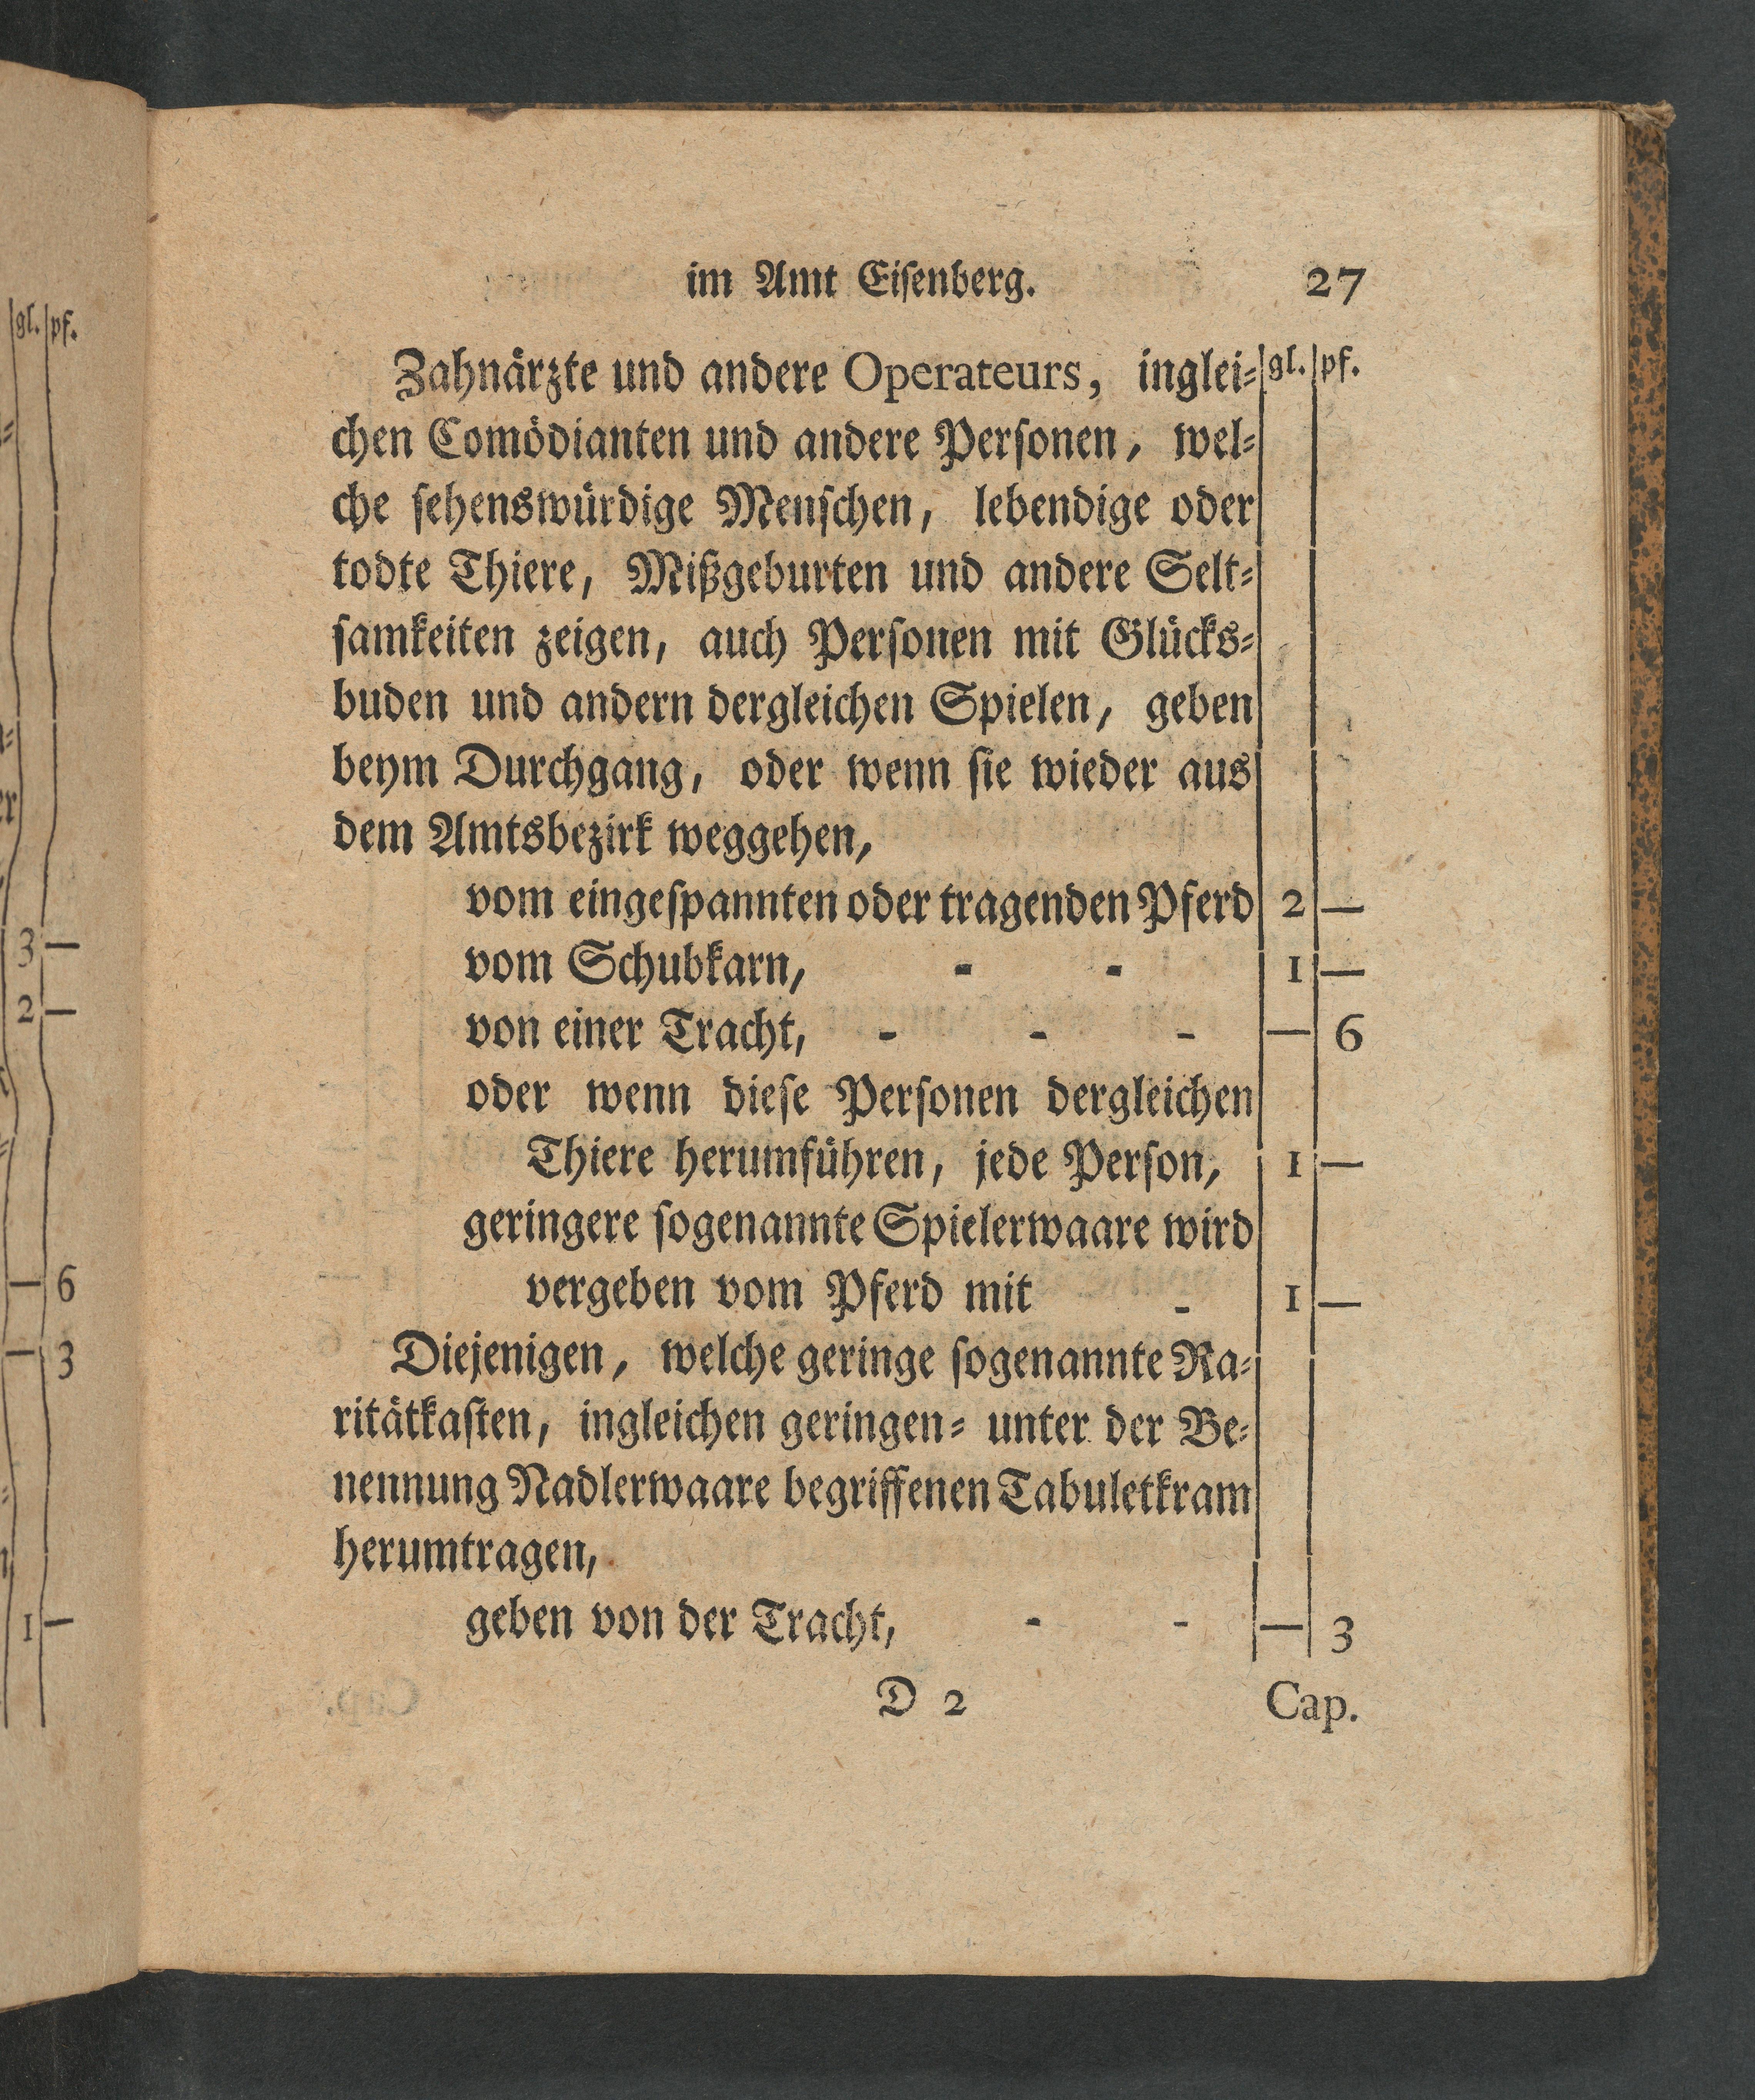 gl. pf.
3 —
2 —
— 6
— 3
1 —
im Amt Eiſenberg. 27
Zahnärzte und andere Operateurs, inglei= gl. pf.
chen Comödianten und andere Perſonen, wel=
che ſehenswürdige Menſchen, lebendige oder
todte Thiere, Mißgeburten und andere Selt=
ſamkeiten zeigen, auch Perſonen mit Glücks=
buden und andern dergleichen Spielen, geben
beym Durchgang, oder wenn ſie wieder aus
dem Amtsbezirk weggehen,
vom eingeſpannten oder tragenden Pferd 2 —
vom Schubkarn, - - 1 —
von einer Tracht, - - - — 6
oder wenn dieſe Perſonen dergleichen
Thiere herumführen, jede Perſon, 1 —
geringere ſogenannte Spielerwaare wird
vergeben vom Pferd mit - 1 —
Diejenigen, welche geringe ſogenannte Ra=
ritätkaſten, ingleichen geringen= unter der Be=
nennung Nadlerwaare begriffenen Tabuletkram
herumtragen,
geben von der Tracht, - - — 3
D 2 Cap.